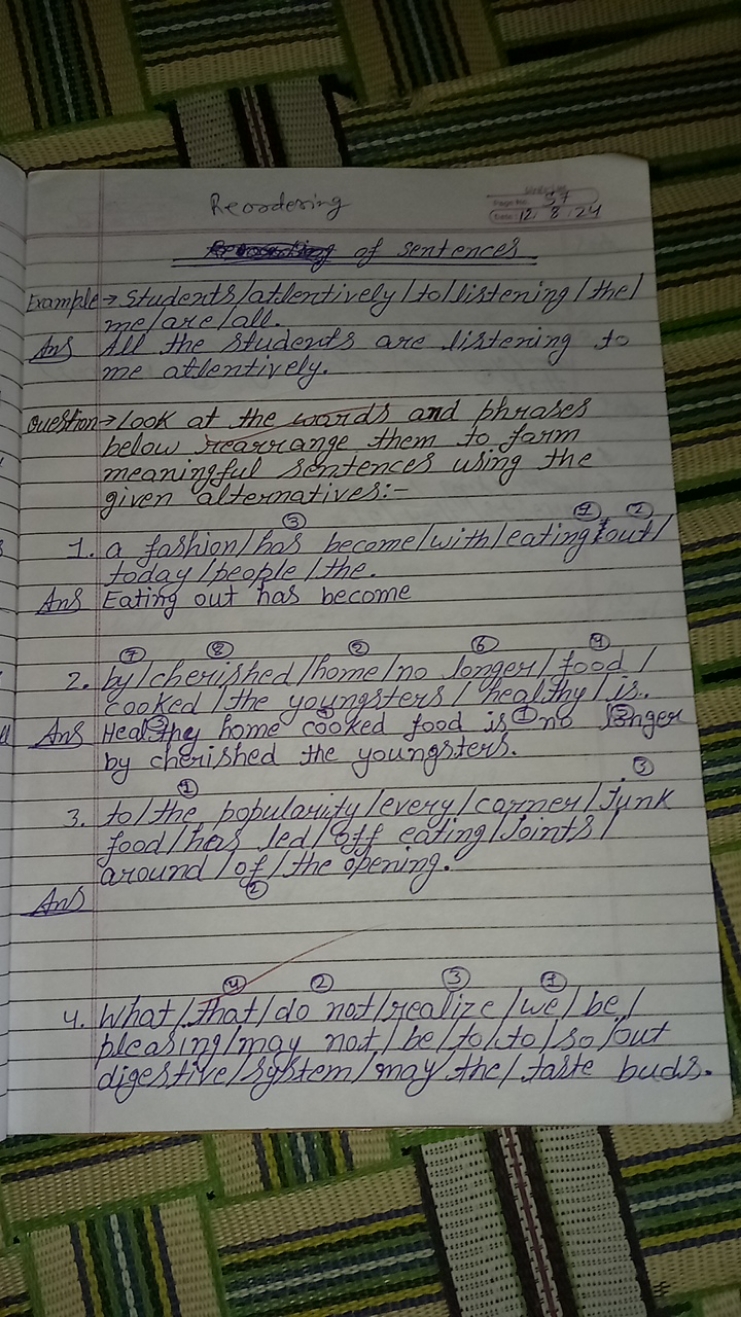 Reordering
Page No. 37
Date: 12/8/24
of sentences
Example → Students/attentively/to/listening/the/
me/are/all.
Ans All the students are listening to
me attentively.
Question → Look at the words and phrases
below rearrange them to form
meaningful sentences using the
given alternatives:-
③ ① ②
1. a fashion/has become/with/eating/out/
today/people/the.
Ans Eating out has become
⑦ ⑧ ② ⑥ ④
2. by/cherished/home/no longer/food/
cooked/the youngsters/healthy/is.
③ ① ⑤
Ans Healthy home cooked food is no longer
by cherished the youngsters.
① ③
3. to/the popularity/every/corner/junk
food/has led/off eating/Joints/
around/of/the opening.
②
Ans
④ ② ③ ①
4. What/that/do not/realize/we/be/
pleasing/may not/be/to/to/so/out
digestive/system/may the/taste buds.